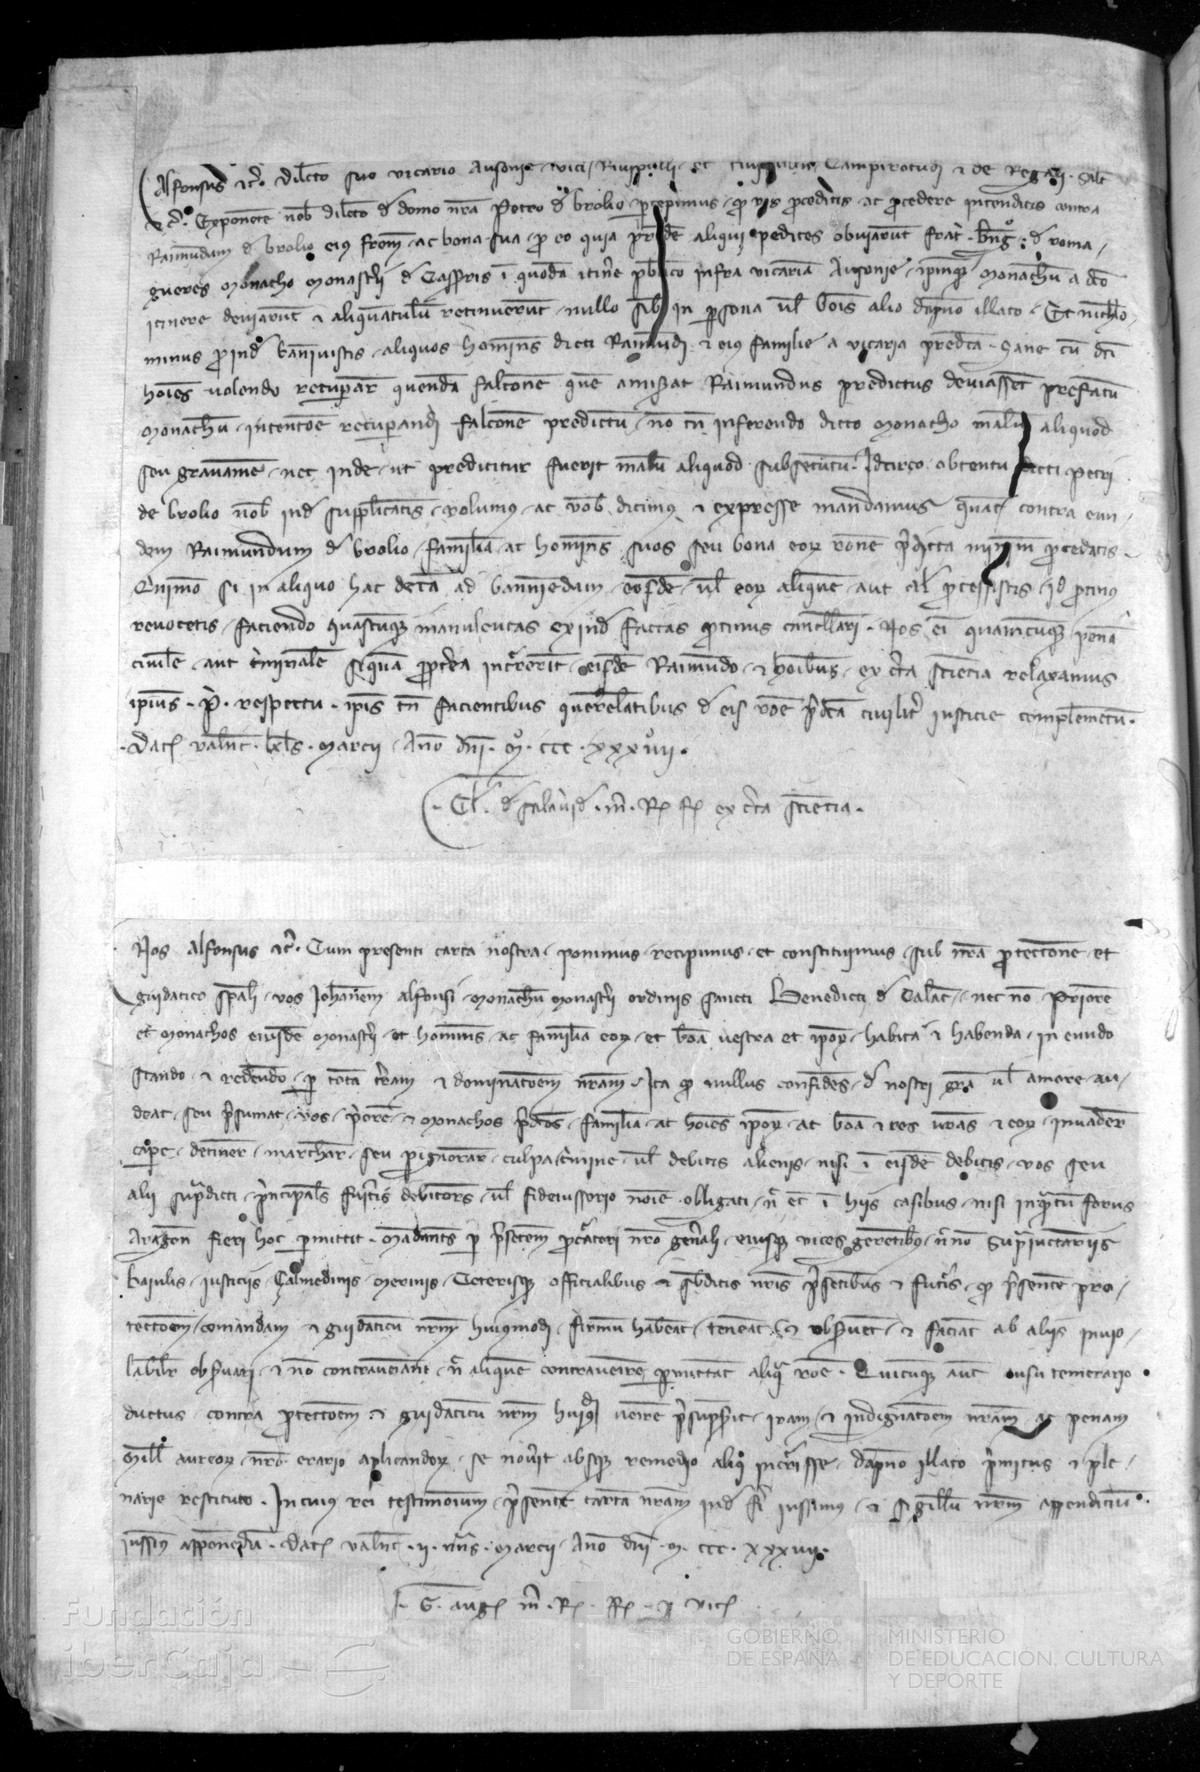 Alfonsus etc. Dilecto suo vicario Ausonie vici Rivipulli et Campirotundi et de Regali Salt
etc. Exponente nob dilecto d domo nra Petro d brolio percepimus qd vos proceditis ac procedere intenditis contra
Raimundum d brolio eius frem ac bona sua pro eo quia pridē aliqui pedites obviarunt frat Bng d roma,
gueres monacho monastrii d in quodā itinere publico infra vicariā Ausonie ipmqz monachū a dco
itinere deviarunt et aliquantulū retinuerūt nullo sibi in persona vl bonis alio dampno illato Et nichilo,
minus proind bannivistis aliquos homines dicti Raimundi et eius familie a vicaria predcta Sane cū dci
hoies volendo recuperar quendā falconē quē amiserat Raimundus predictus deviassent prefatū
monachū intentoe recuperandi falconē predictū no tn inferendo dicto monacho malū aliquod
seu gravamē nec inde ut predicitur fuerit malū aliquod subsecutū Idcirco obtentu dicti Petri
de brolio nob ind supplicantis volumus ac vob dicimus et expresse mandamus quat contra eun,
dem Raimundum d brolio familiā ac homines suos seu bona eorz rone pdicta minime procedatis
Quinimo si in aliquo hac de cā ad banniendum eosdē vl eorz aliquē aut al processistis id protinus
revocetis faciendo quascumqz manuleutas exind factas protinus cancellari Nos ei quamcumqz penā
civilē aut criminalē siquā propterea incurrerint eisdē Raimundo et hoibus ex certa scientia relaxamus
ipsius P respectu ipis tn facientibus querelantibus d eis roe pdcā civilit iusticie complementū
Dat Valn kls Marcii Ano dni M CCC XXX VII
m R ex certa scientia
Nos Alfonsus etc. Cum presenti carta nostra ponimus recipimus et constituimus sub nra protectione et
guidatico spali vos Johannem Alfonsi monachū monastrii ordinis sancti Benedicti d Calat nec non Priorē
et monachos eiusdē monastrii et homines ac familiā eorz et bona vestra et ipoz habita et habenda in eundo
stando et redeundo per totā terram et dominatoem nram Ita qd nullus confidens d nostri gra vl amore au,
deat seu psumat vos priorē et monachos pdcos familiā ac hoies ipoz ac bona et res vras et eorz invadere
capere detinere marchare seu pignorare culpa crimine vl debitis alienis nisi in eisdē debitis vos seu
alii supdicti principales fueritis debitores vl fideiussorio noie obligati nec et in hiis casibus nisi inquantū forus
Aragon fieri hoc permittit Mandantes per psentem procuratori nro generali eiusqz vices gerentibus nec no suprajunctariis
baiulis iusticiis Çalmedinis merinis Ceterisqz officialibus et subditis nris psentibus et futuris qd psente pro,
tectoem comandam et guidaticū nrm huiusmodi firmū habeant teneant et observent et faciant ab aliis invio,
labilr observari et no contraveniant nec aliquē contravenire permittant aliqua roe Quicumqz aut ausu temerario
ductus contra protectoem et guidaticū nrm huiusmodi venire psumpserit iram et indignatoem nram ac penam
Mille aureorz nro erario aplicandorz se noverit absqz remedio aliquo incurrisse dampno illato primitus et ple,
narie restituto In cuius rei testimonium psente cartā nram ind fieri iussimus et sigillū nrm appendiciū
iussim apponendū Dat Valn II nonas Marcii Ano dni M CCC XXXVII
G. Aug m R
Fundación
iberCaja
GOBIERNO
DE ESPAÑA
MINISTERIO
DE EDUCACIÓN, CULTURA
Y DEPORTE